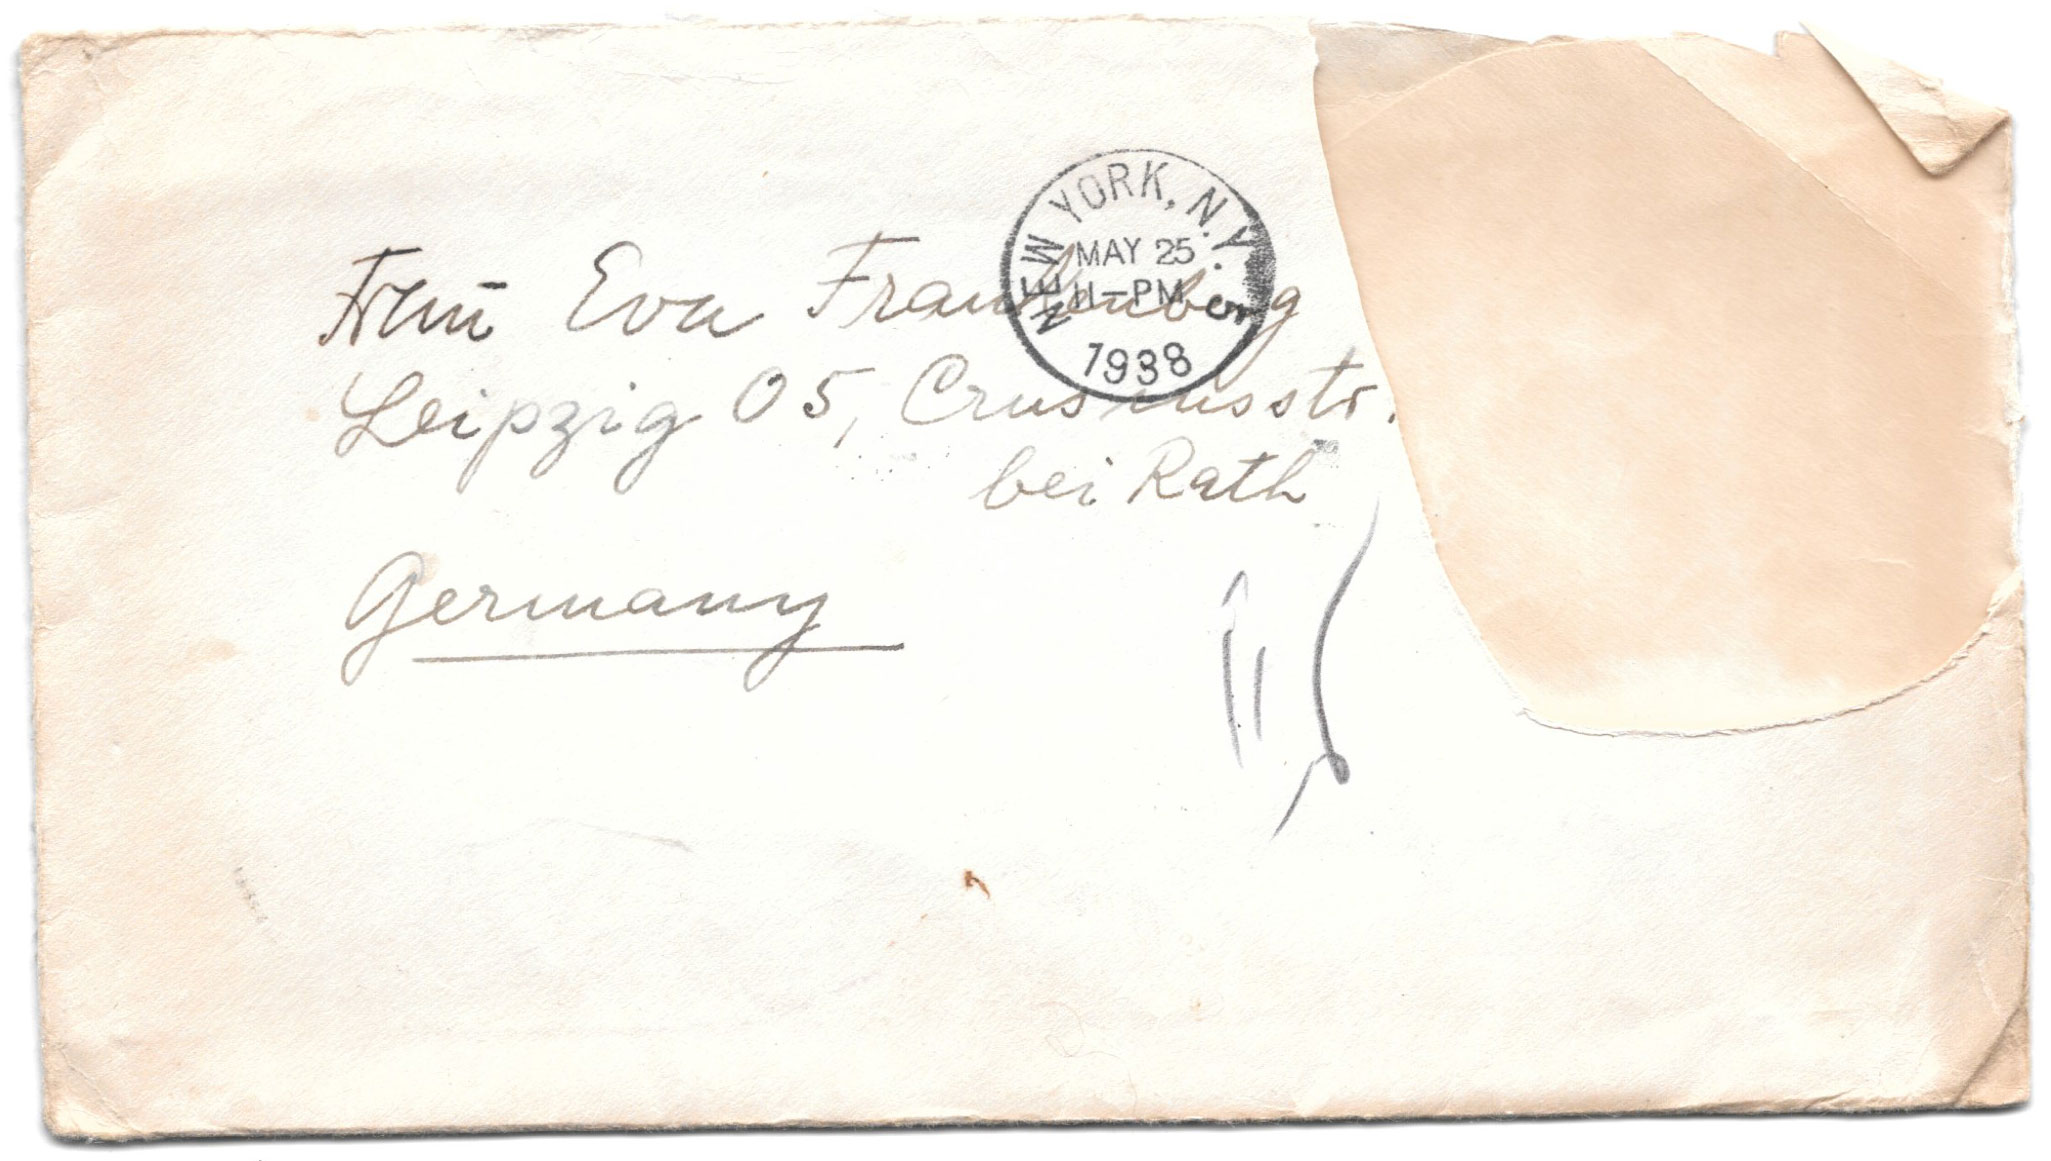 NEW YORK, N.Y.
MAY 25
11-PM
1938
Frau Eva Frankenberg
Leipzig O5, Crusiusstr.
bei Rath
Germany